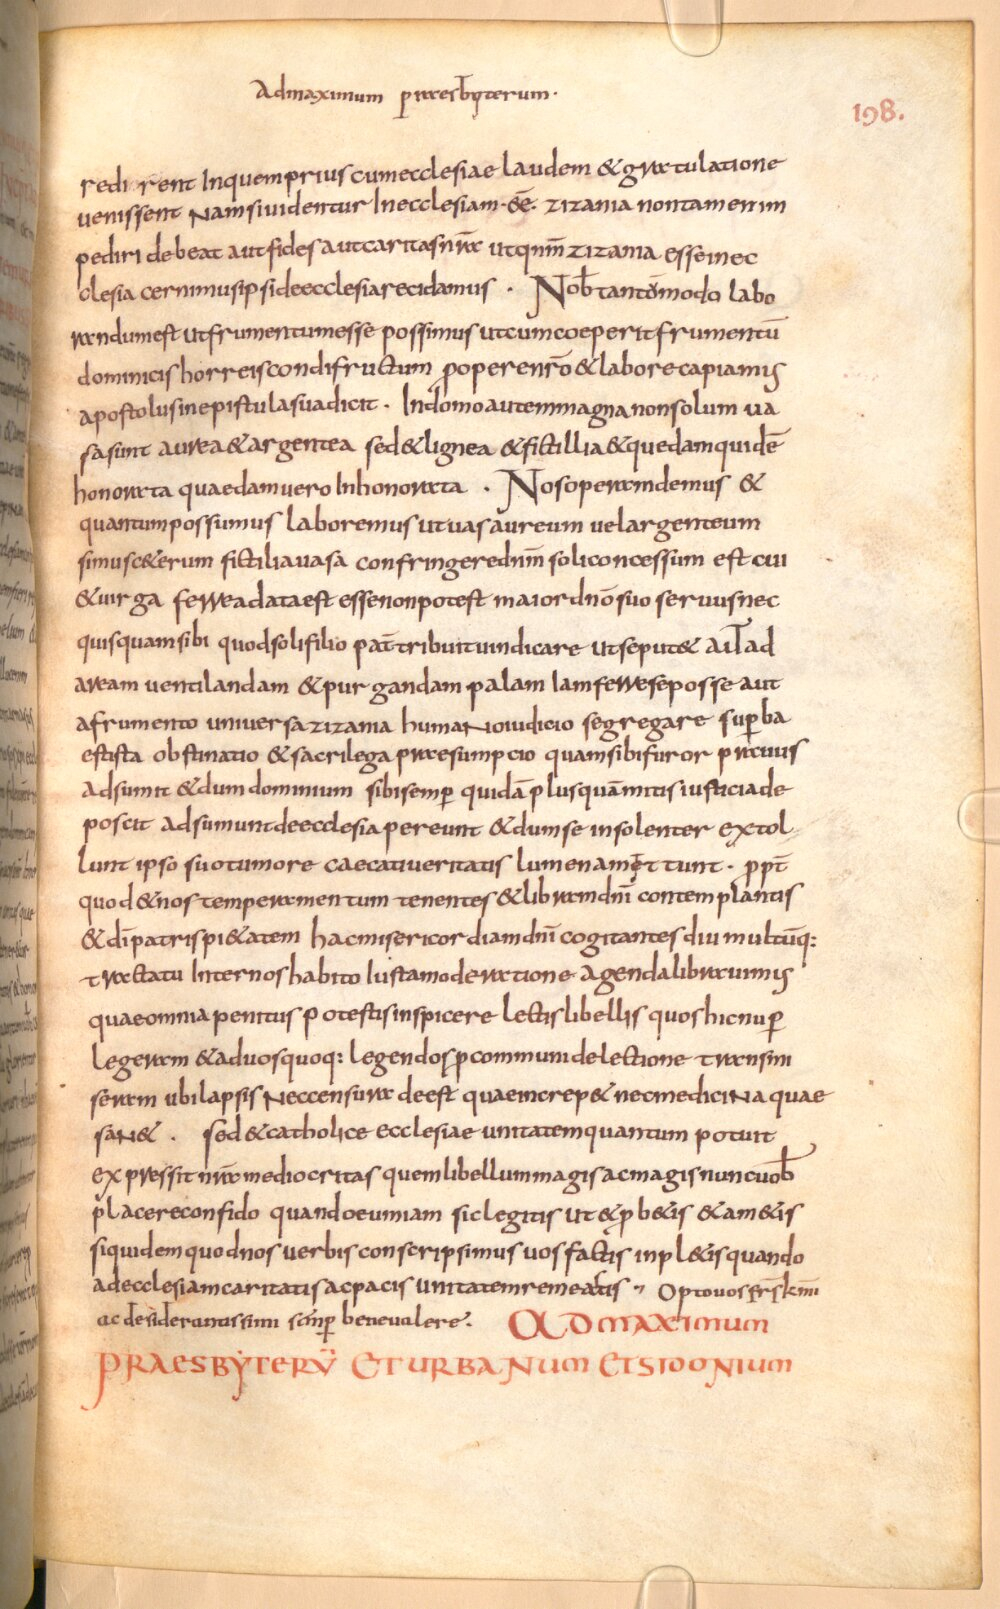 Admaximum praesbyterum·
198.
redi rent Inquemprius cumecclesiae laudem & gratulatione
uenissent Namsiuidentur Inecclesiam·eē· zizania nontamen im
pediri debeat aut fides aut caritas nr̄a ut qnm̄ zizania esse inec
clesia cernimus ipsi deecclesia recidamus · Nob̄ tantōmodo labo
randum est ut frumentum esse possimus ut cum coeperit frumentū
dominicis horreis condi fructum ꝓ opere nr̄o & labore capiamus
apostolus in epistula sua dicit · In domo autem magna non solum ua
sa sunt aurea & argentea sed & lignea & fictillia & quedam quidē
honorata quaedam uero Inhonorata · Nos operam demus &
quantum possumus laboremus ut uas aureum uel argenteum
simus c&erum fictilia uasa confringere dnm̄ soli concessum est cui
& uirga ferrea data est esse non potest maior dnō suo seruus nec
quisquam sibi quod soli filio pat̄ tribuit uindicare ut se put& aut ad
aream uentilandam & purgandam palam Iam ferre se posse aut
a frumento uniuersa zizania humaNo iudicio segregare suꝑba
est ista obstinatio & sacrilega praesumpcio quam sibi furor prauus
adsumit & dum dominium sibi semꝑ quidā plus quā mitis iusticia de
poscit adsumunt de ecclesia pereunt & dum se insolenter extol
lunt ipso suo tumore caecati ueritatis lumen amittunt · ꝓpt̄
quod & nos temperamentum tenentes & libram dnī contemplantis
& dī patris pi&atem hac misericordiam dnī cogitantes diu multūq:
tractatu Inter nos habito Iusta moderatione agenda librauimus
quae omnia penitus potestis inspicere lectis libellis quos hic nuꝑ
legeram & ad uos quoq: legendos ꝓ communi delectione transmi
seram ubi lapsis Nec censura deest quae increp& nec medicina quae
saN& · sed & catholice ecclesiae unitatem quantum potuit
expressit nr̄a mediocritas quem libellum magis ac magis nunc uob̄
placere confido quando eum iam sic legitis ut & ꝓb&is & am&is
siquidem quod nos uerbis conscripsimus uos factis inpl&is quando
ad ecclesiam caritatis ac pacis unitatem remeatis · Opto uos frs̄ km̄i
ac desiderantissimi sem̄ꝑ beneualere. AD MAXIMUM
PRAESBYTERŪ ET URBANUM ET SIDONIUM